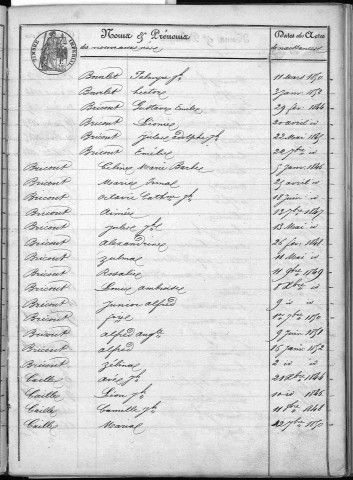 TIMBRE IMPERIAL
Noms & Prénoms
des nouveaux nés
Dates des Actes
de naissances
Boulet Palmyre Jh 11 Mars 1850
Boulet hector 3 Janv 1852
Bricout Gustave Emile 29 fév 1844
Bricout Léonie 20 avril id
Bricout Jules Adolphe Jh 22 Mai 1845
Bricout Emélie 22 7bre id
Bricout Céline Marie Barbe 7 Janv 1846
Bricout Maria 25 avril id
Bricout Octavie Cathne Jh 18 Juin id
Bricout Aimée 13 7bre 1847
Bricout Julie Jh 13 Mai id
Bricout Alexandrine 26 fév 1848
Bricout Zulma 20 Mai id
Bricout Rosalie 11 9bre 1849
Bricout Louis ambroise 8 Xbre id
Bricout Junior alfred 9 id id
Bricout 1er 7bre 1850
Bricout alfred augte 9 Juin 1851
Bricout alfred 15 Janv 1852
Bricout Zélina 2 id id
Caille Jh 20 Xbre 1844
Caille Léon Jh 10 id 1845
Caille Camille Jh 11 1848
Caille Maria 12 7bre 1850